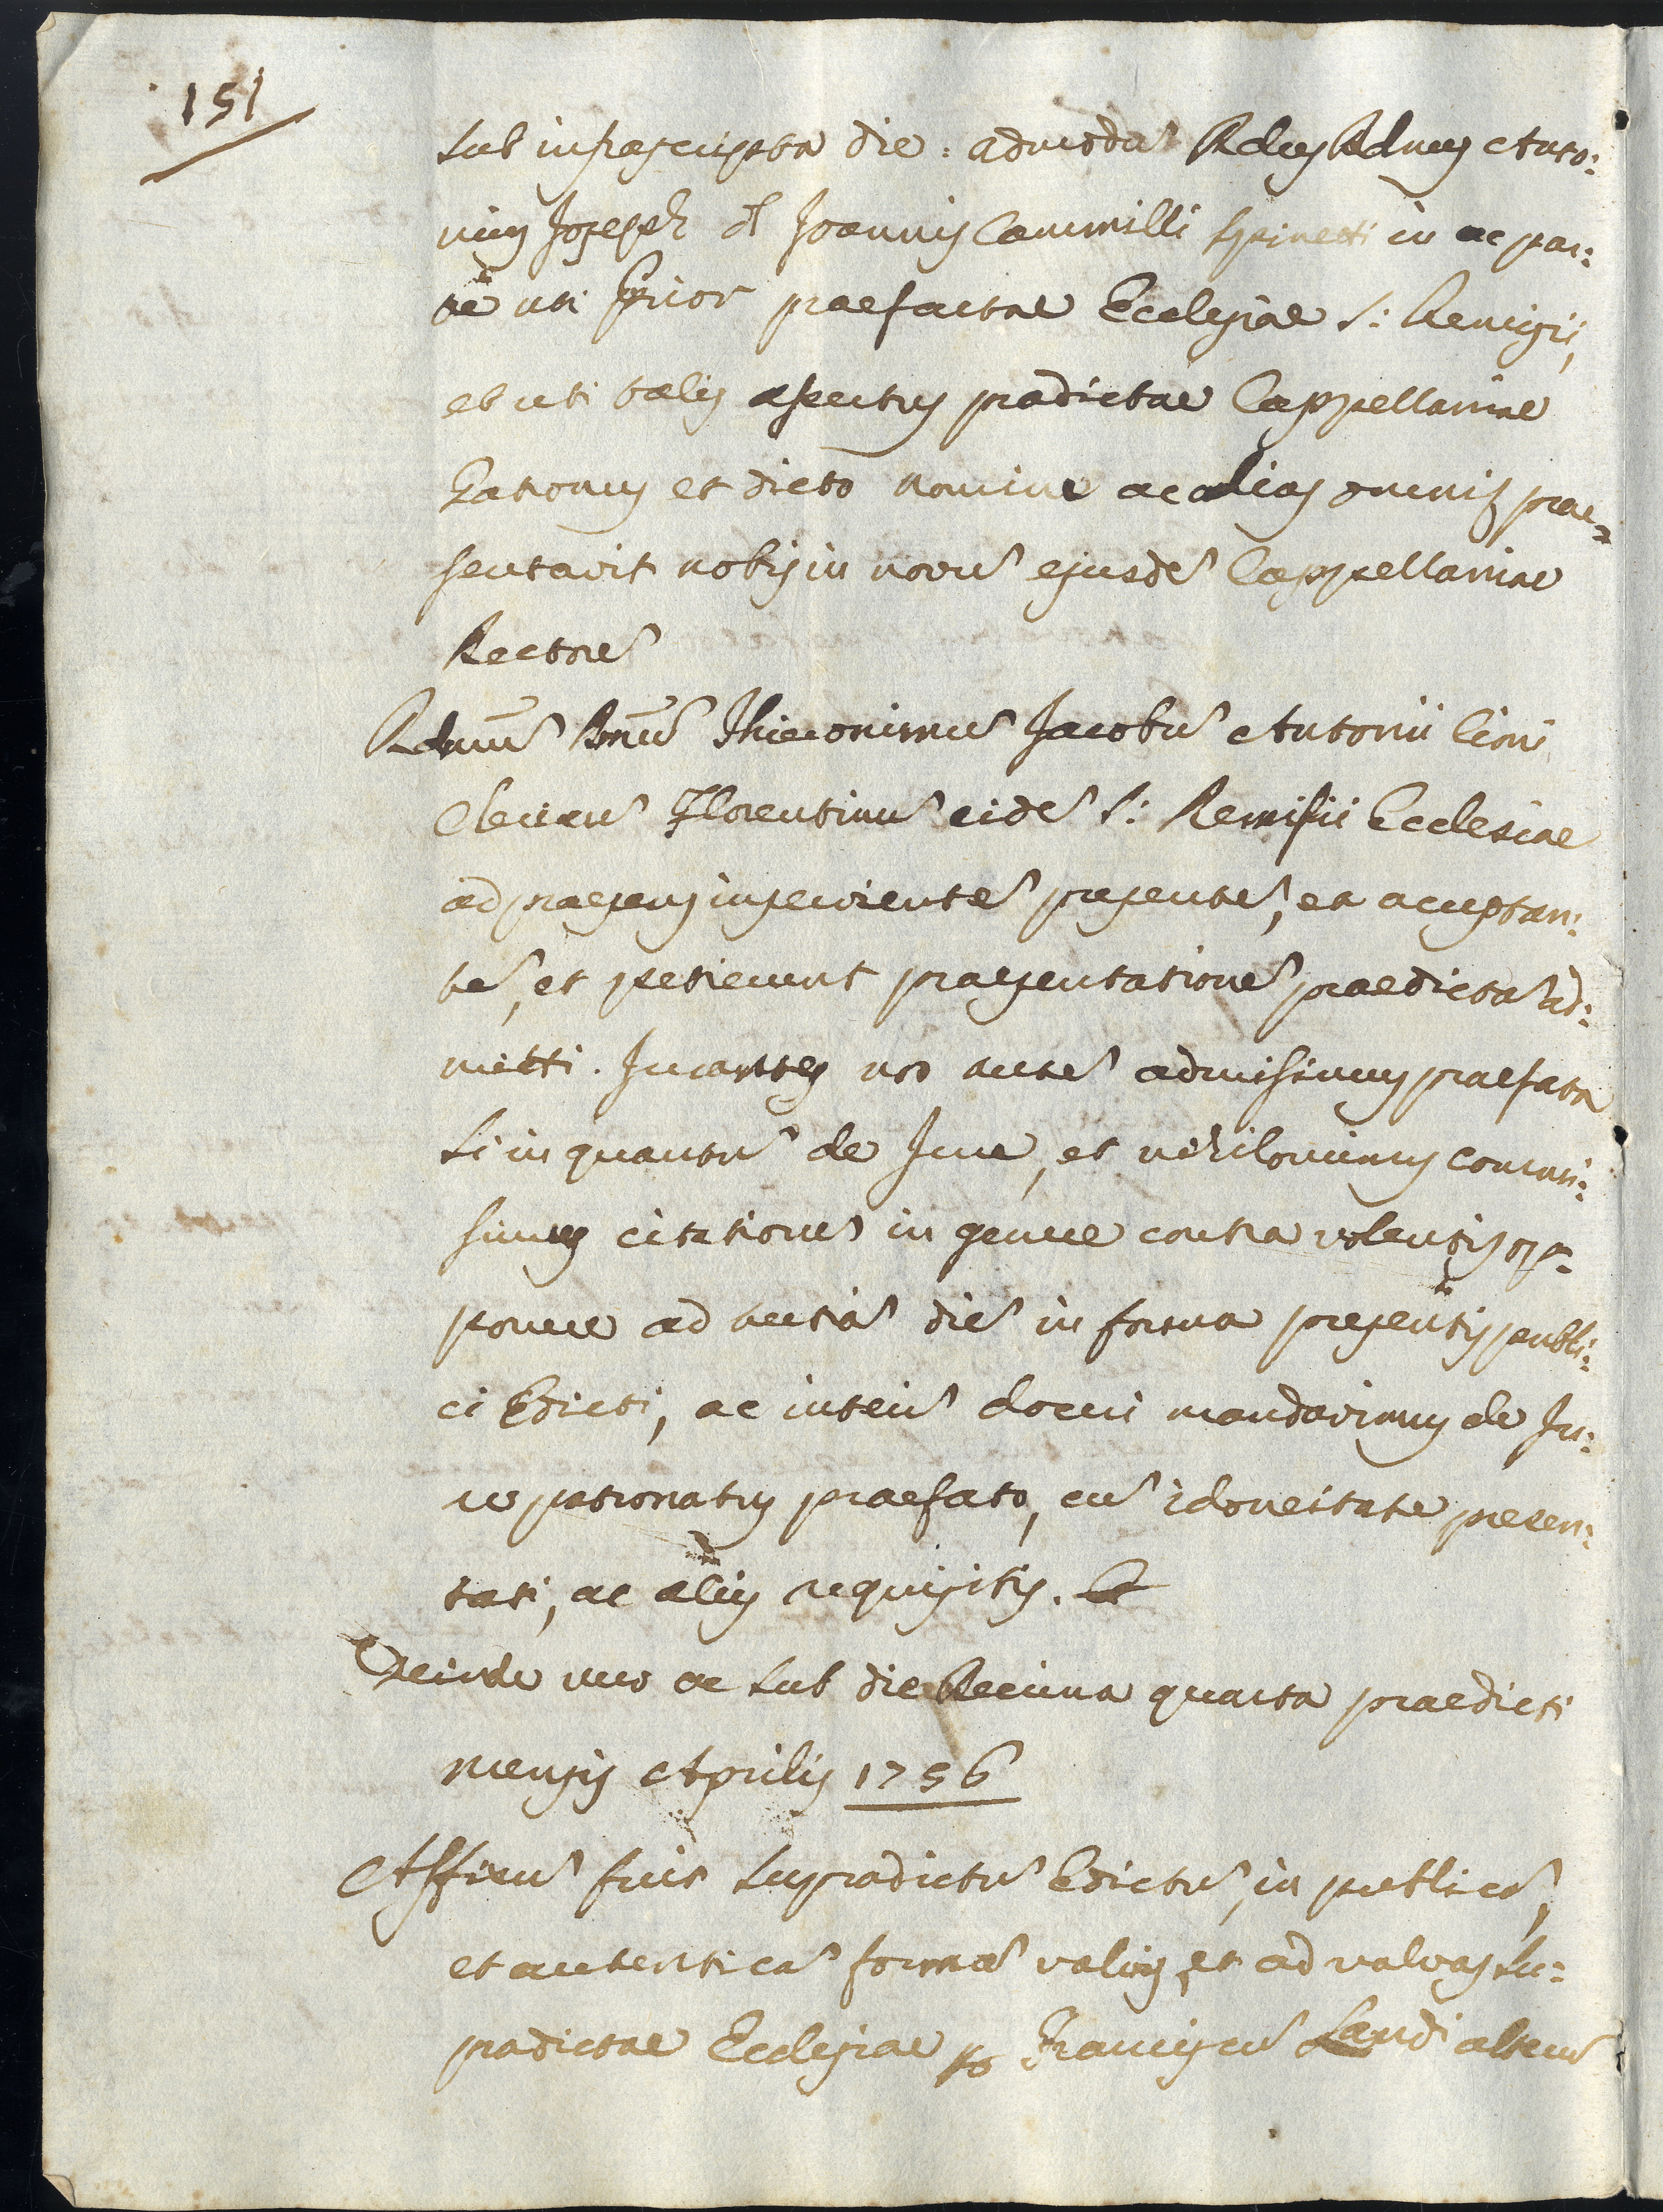 151
sub infrascripta die: admodũ Rdus Rdnus Anto:
nius Joseph q̃ Joannis Cammilli Spinetti in ac par:
te uti Prior praefactae Ecclesiae S: Remigii,
et uti talis assertus pradictae Cappellaniae
Patronus et dicto nomine ac alias omnis prae=
sentavit nobis in novũ ejusdẽ Cappellaniae
Rectorẽ
Rdnũ Dnũ Thieronimũ Jacobũ Antonii Cioni
Clericũ Florentinũ eidẽ S: Remisii Ecclesiae
ad praesens inservientẽ presentẽ, et acceptan:
tẽ, et petierunt praesentationẽ praedictã ad:
mitti. Jurantes nos autẽ admisimus praefata
si in quantũ de Jure, et nihilominus commi:
simus citationẽ in genere contra volentis op=
ponere ad tertiã diẽ in forma presentis publi:
ci Edicti, ac interĩ doceri mandavimus de Ju:
re patronatus praefato, cũ idoneitate presen:
tati, ac aliis requisitis.
Deinde vero ac sub die Decima quarta praedicti
mensis Aprilis 1756
Affixũ fuit supradictũ Edictũ, in publicã,
et autenticã formã valvis, et ad valvas su:
pradictae Ecclesiae p Franciscũ Landi alterũ